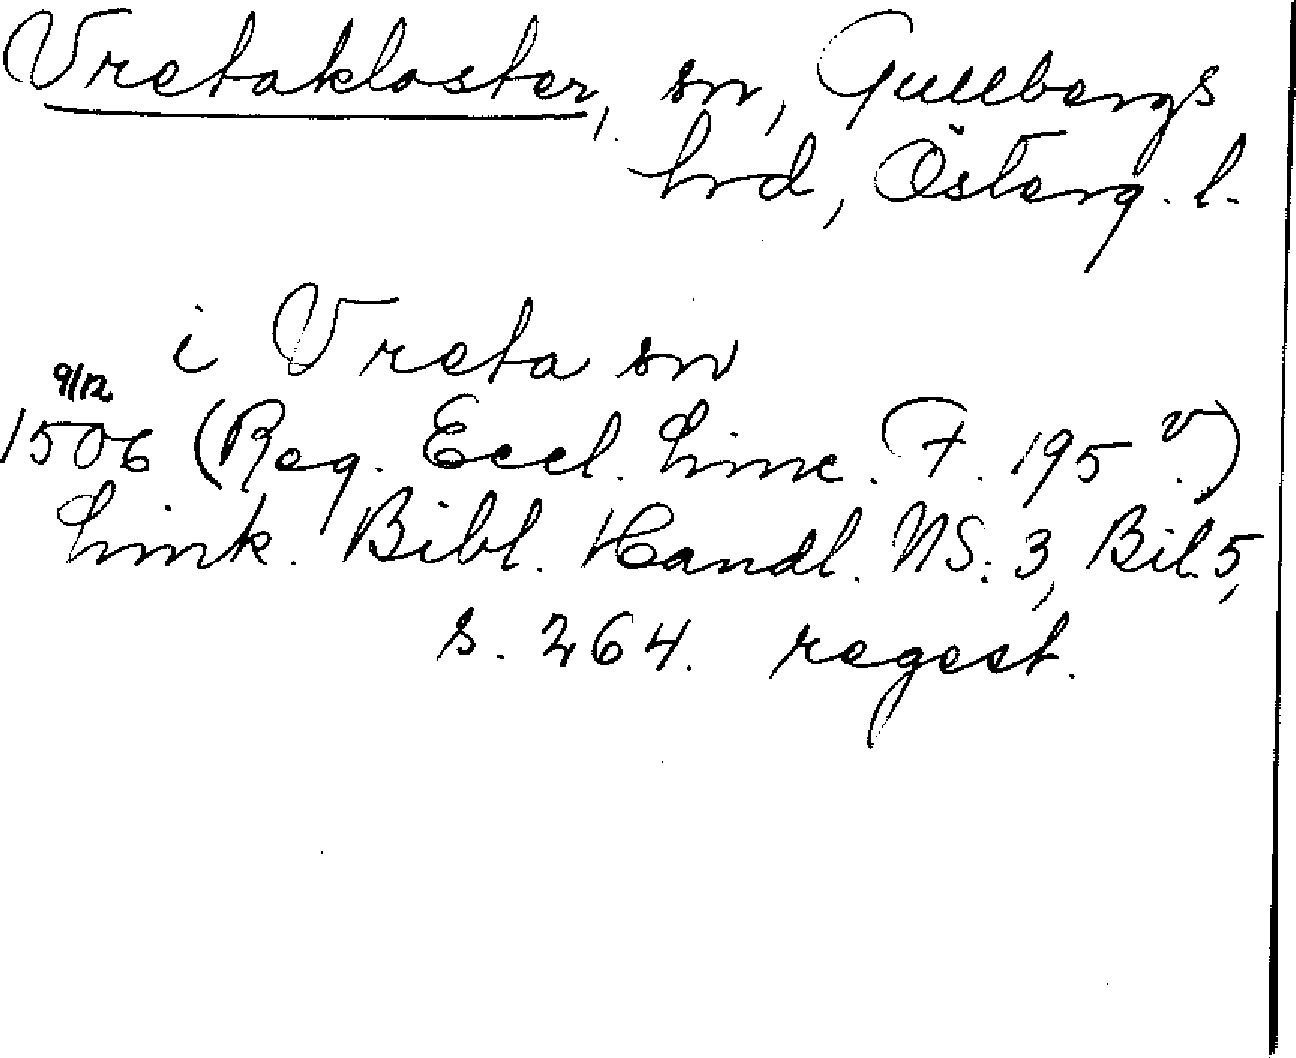 Vretakloster, sn, Gullbergs
hrd, Österg. l.
i Vreta sn
9/12
1506 (Reg. Eccl. Linc. F. 195 v.)
Link. Bibl. Handl. NS. 3, Bil. 5,
s. 264. regest.